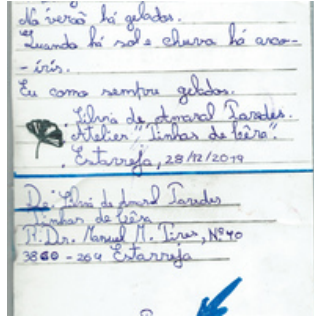 No verão há gelados.
Quando há sol e chuva há arco-
- íris.
Eu como sempre gelados.
. Sílvia de Amaral Taredes.
. Atelier "Tinhas de Cêra".
. Estarreja, 28/12/2019
De: Sílvia de Amaral Taredes
Tinhas de Cêra
R: Dr. Manuel M. Tires, Nº40
3860 - 264 Estarreja